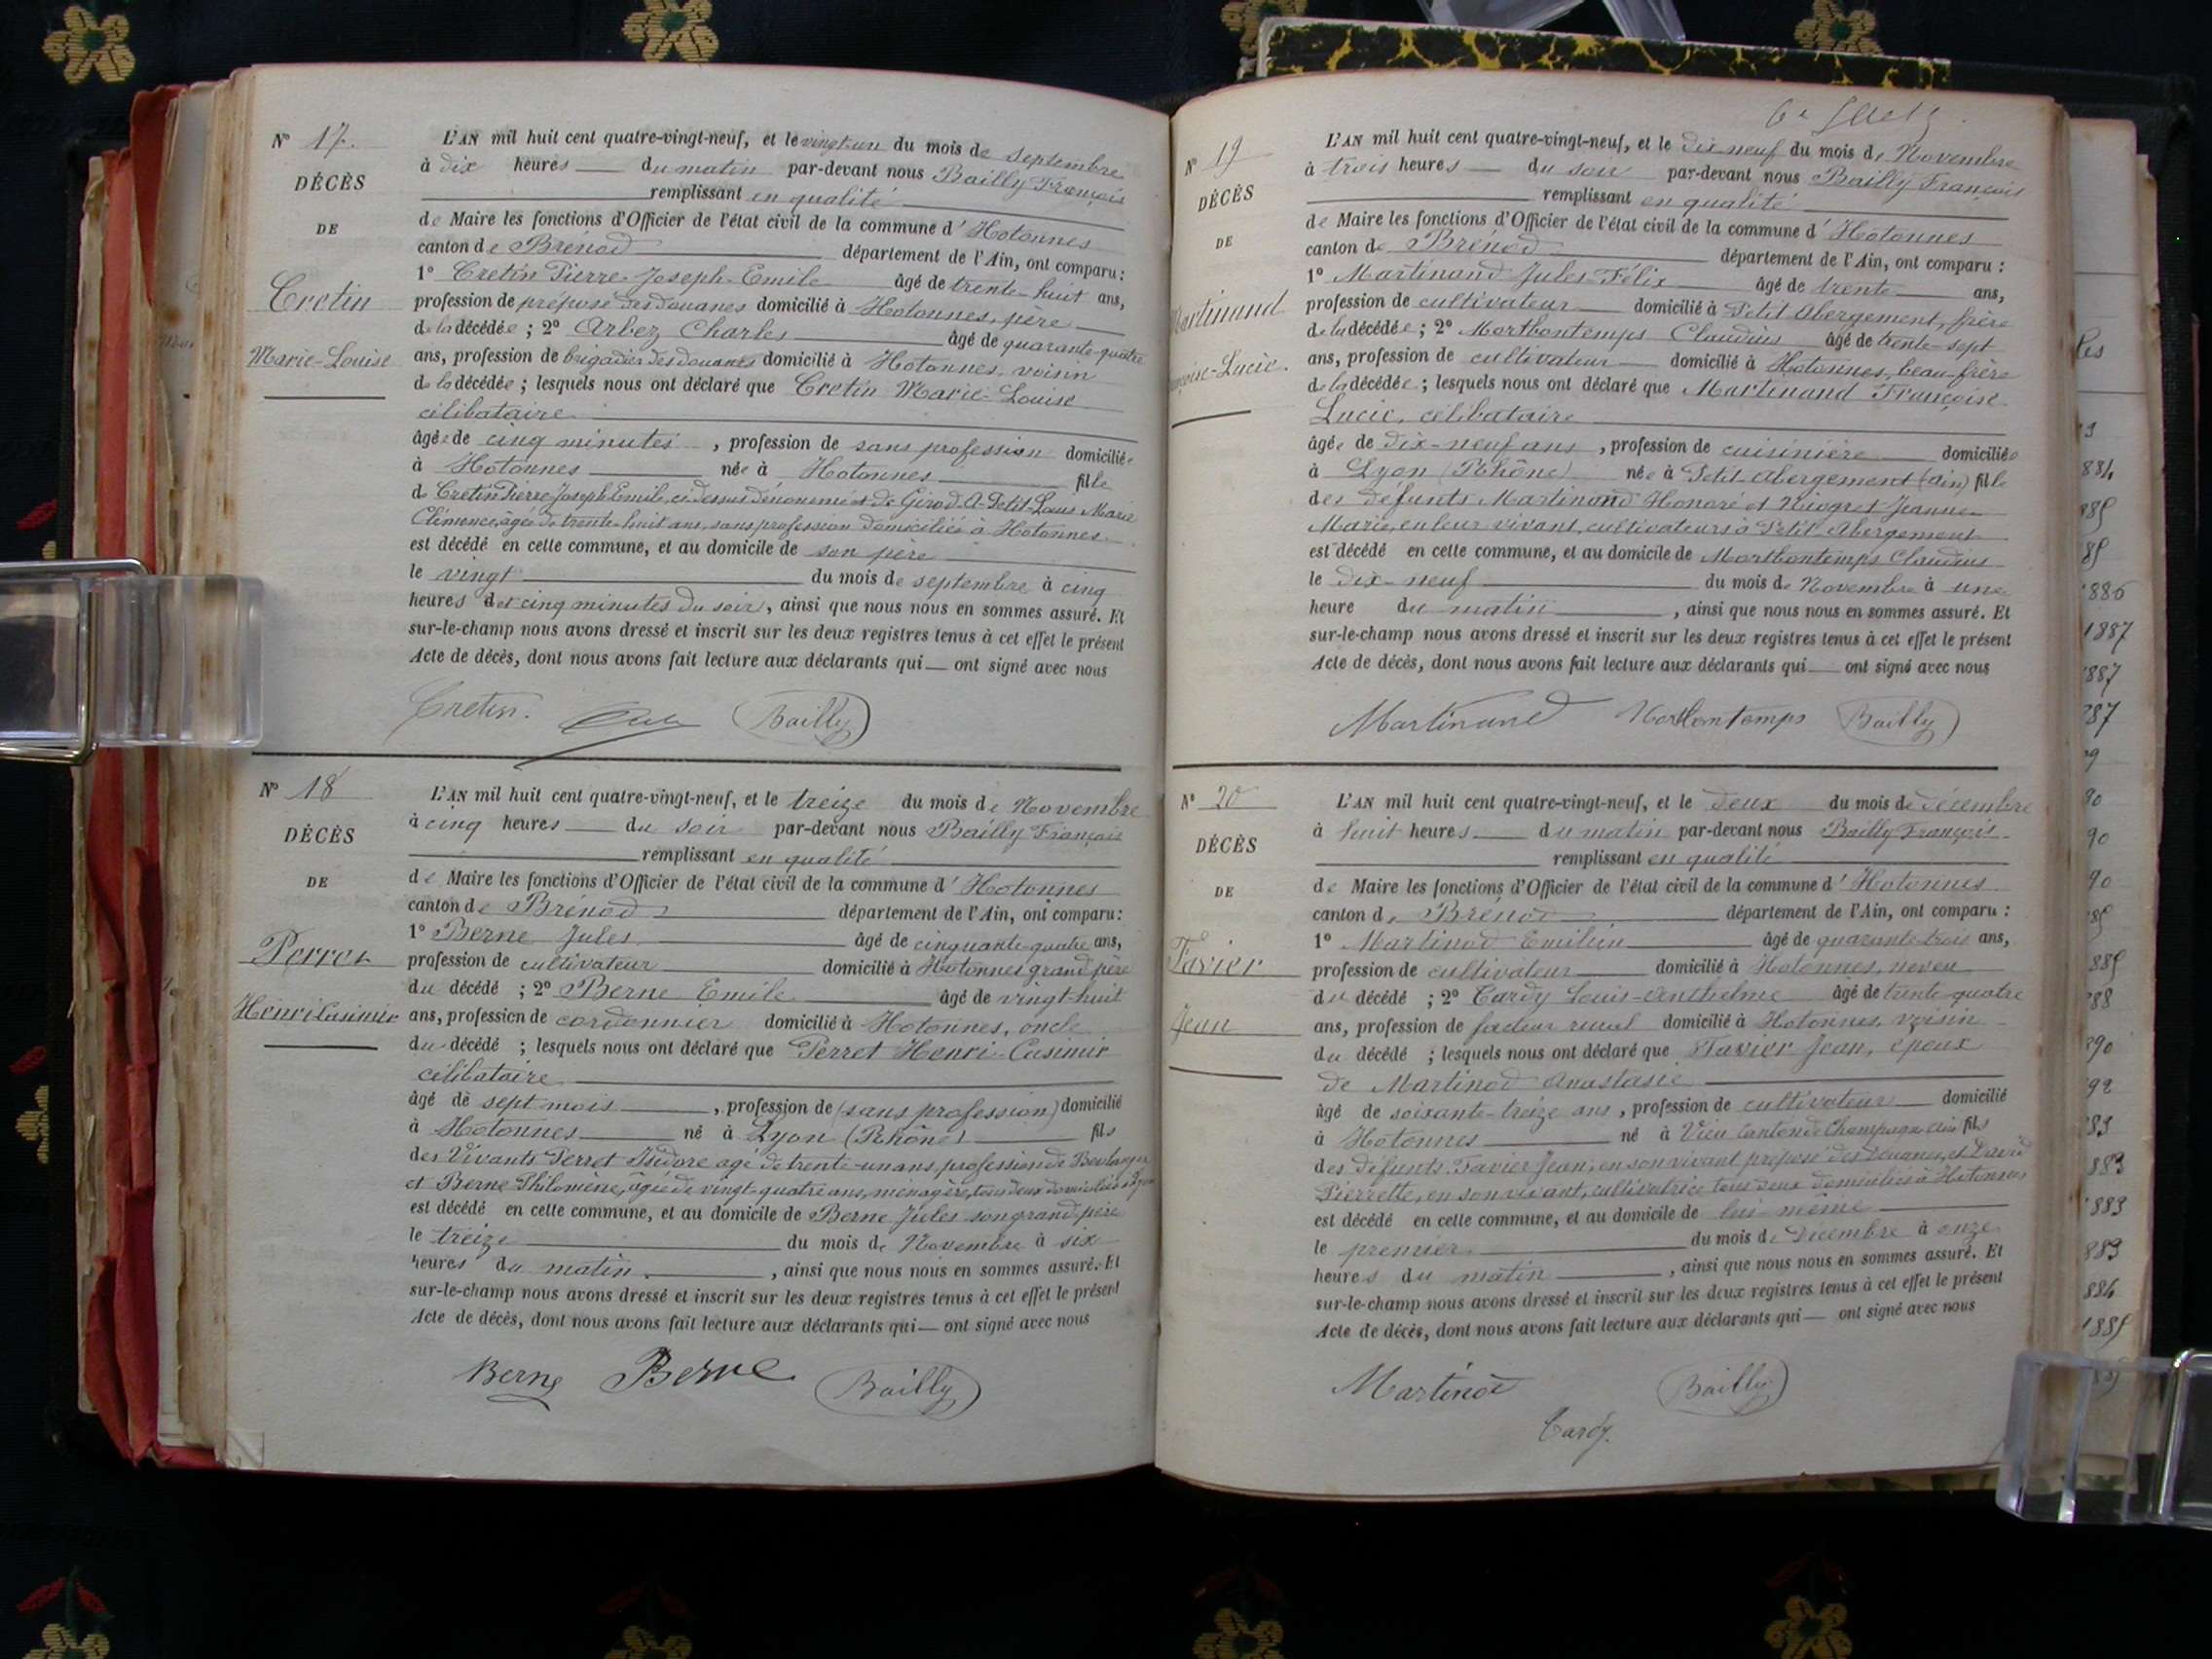 N° 17.
DÉCÈS
DE
Cretin
Marie-Louise
L'AN mil huit cent quatre-vingt-neuf, et le vingt-un du mois de septembre
à dix heures du matin par-devant nous Bailly François
remplissant en qualité
de Maire les fonctions d'Officier de l'état civil de la commune d'Hotonnes
canton de Brénod département de l'Ain, ont comparu :
1° Cretin Pierre-Joseph-Emile âgé de trente-huit ans,
profession de préposé des douanes domicilié à Hotonnes, père
de la décédée ; 2° Arbez Charles âgé de quarante-quatre
ans, profession de brigadier des douanes domicilié à Hotonnes, voisin
de la décédée ; lesquels nous ont déclaré que Cretin Marie-Louise
célibataire
âgée de cinq minutes , profession de sans profession domiciliée
à Hotonnes née à Hotonnes fille
de Cretin Pierre Joseph Emile, ci-dessus dénommé et de Girod-A-Petit-Louis Marie
Clémence, âgée de trente-huit ans, sans profession domiciliée à Hotonnes
est décédé en cette commune, et au domicile de son père
le vingt du mois de septembre à cinq
heures et cinq minutes du soir, ainsi que nous nous en sommes assuré. Et
sur-le-champ nous avons dressé et inscrit sur les deux registres tenus à cet effet le présent
Acte de décès, dont nous avons fait lecture aux déclarants qui ont signé avec nous
Cretin. Bailly
N° 18
DÉCÈS
DE
Perret
Henri Casimir
L'AN mil huit cent quatre-vingt-neuf, et le treize du mois de Novembre
à cinq heures du soir par-devant nous Bailly François
remplissant en qualité
de Maire les fonctions d'Officier de l'état civil de la commune d'Hotonnes
canton de Brénod département de l'Ain, ont comparu :
1° Berne Jules âgé de cinquante-quatre ans,
profession de cultivateur domicilié à Hotonnes grand père
du décédé ; 2° Berne Emile âgé de vingt-huit
ans, profession de cordonnier domicilié à Hotonnes, oncle
du décédé ; lesquels nous ont déclaré que Perret Henri-Casimir
célibataire
âgé de sept mois , profession de (sans profession) domicilié
à Hotonnes né à Lyon (Rhône) fils
des Vivants Perret Isidore agé de trente-un ans, profession de Boulanger
et Berne Philomène, agée de vingt-quatre ans, ménagère, tous deux domiciliés à Lyon
est décédé en cette commune, et au domicile de Berne Jules son grand père
le treize du mois de Novembre à six
heures du matin , ainsi que nous nous en sommes assuré. Et
sur-le-champ nous avons dressé et inscrit sur les deux registres tenus à cet effet le présent
Acte de décès, dont nous avons fait lecture aux déclarants qui ont signé avec nous
Berne Berne Bailly
N° 19
DÉCÈS
DE
Martinand
L'AN mil huit cent quatre-vingt-neuf, et le dix neuf du mois de Novembre
à trois heures du soir par-devant nous Bailly François
remplissant en qualité
de Maire les fonctions d'Officier de l'état civil de la commune d'Hotonnes
canton de Brénod département de l'Ain, ont comparu :
1° Martinand Jules-Félix âgé de trente ans,
profession de cultivateur domicilié à Petit Abergement, frère
de la décédée ; 2° Mortbontemps Claudius âgé de trente-sept
ans, profession de cultivateur domicilié à Hotonnes, beau-frère
de la décédée ; lesquels nous ont déclaré que Martinand Françoise
Lucie, célibataire
âgée de dix-neuf ans , profession de cuisinière domiciliée
à Lyon (Rhône) née à Petit Abergement (ain) fille
des défunts Martinand Honoré et Niogret Jeanne
Marie, en leur vivant, cultivateurs à Petit Abergement
est décédé en cette commune, et au domicile de Mortbontemps Claudius
le dix-neuf du mois de Novembre à une
heure du matin , ainsi que nous nous en sommes assuré. Et
sur-le-champ nous avons dressé et inscrit sur les deux registres tenus à cet effet le présent
Acte de décès, dont nous avons fait lecture aux déclarants qui ont signé avec nous
Martinand Mortbontemps Bailly
N° 20
DÉCÈS
DE
Favier
Jean
L'AN mil huit cent quatre-vingt-neuf, et le deux du mois de décembre
à huit heures du matin par-devant nous Bailly François
remplissant en qualité
de Maire les fonctions d'Officier de l'état civil de la commune d'Hotonnes
canton de Brénod département de l'Ain, ont comparu :
1° Martinod Emilien âgé de quarante trois ans,
profession de cultivateur domicilié à Hotonnes, neveu
du décédé ; 2° Cardy Louis-Anthelme âgé de trente quatre
ans, profession de facteur rural domicilié à Hotonnes, voisin
du décédé ; lesquels nous ont déclaré que Favier Jean, époux
de Martinod Anastasie
âgé de soixante-treize ans , profession de cultivateur domicilié
à Hotonnes né à Vieu Canton de Champagne Ain fils
des défunts Favier Jean, en son vivant préposé des douanes, et David
Pierrette, en son vivant, cultivatrice tous deux domiciliés à Hotonnes
est décédé en cette commune, et au domicile de lui-même
le premier du mois de Décembre à onze
heures du matin , ainsi que nous nous en sommes assuré. Et
sur-le-champ nous avons dressé et inscrit sur les deux registres tenus à cet effet le présent
Acte de décès, dont nous avons fait lecture aux déclarants qui ont signé avec nous
Martinod Bailly
Cardy.
1887